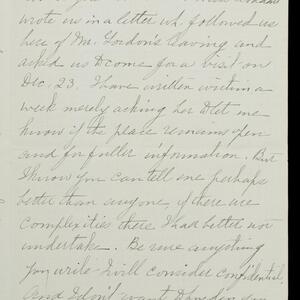 wrote us in a letter wh. followed us
here of Mr. Gordon's leaving and
asked us to come for a visit on
Dec. 23. I have written within a
week merely asking her to let me
know if the place remains open
and for fuller information. But
I know you can tell me perhaps
better than anyone, if there are
complexities there I had better not
undertake. Be sure anything
you write I will consider confidential,
And I don't want